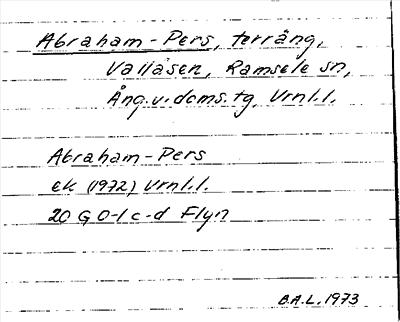 Abraham-Pers, terräng,
Vallåsen, Ramsele sn,
Ång.v.doms.tg, Vrnl.l.
Abraham-Pers
ek (1972) Vrnl.l.
20 G 0-1 c-d Flyn
B.A.L. 1973